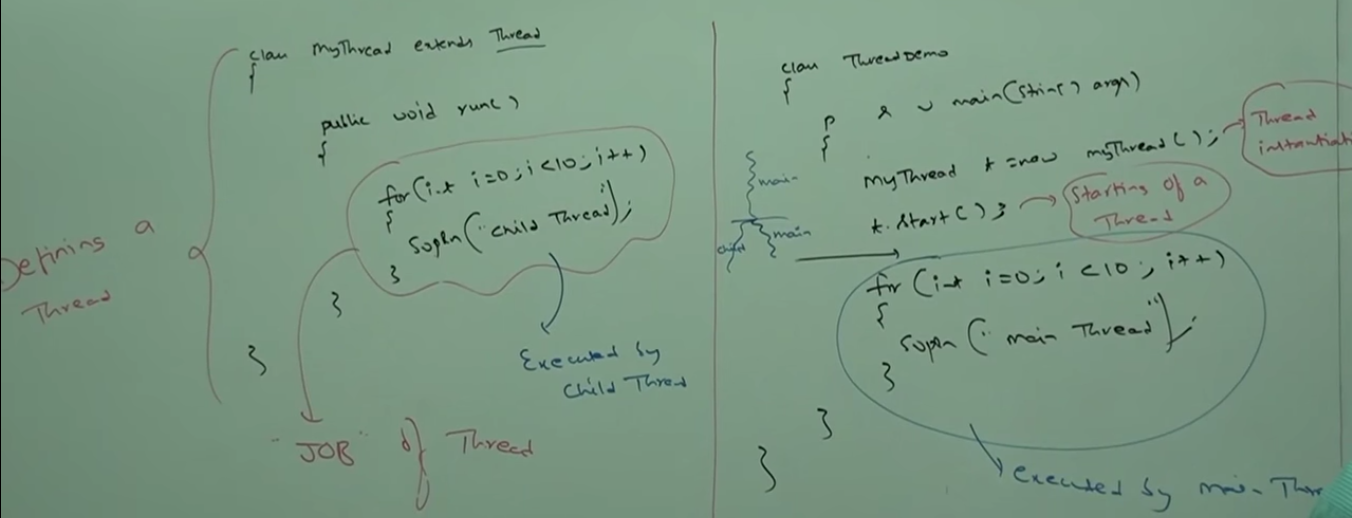 class MyThread extends Thread
{
public void run()
{
for(int i=0; i<10; i++)
{
Sopln("child Thread");
}
}
}
Defining a
Thread
Executed by
Child Thread
"JOB" of Thread
class ThreadDemo
{
p s v main(String[] args)
{
MyThread t = new MyThread();
Thread
t.start();
Starting of a
Thread
main
child
main
for(int i=0; i<10; i++)
{
Sopln("main Thread");
}
}
}
executed by main